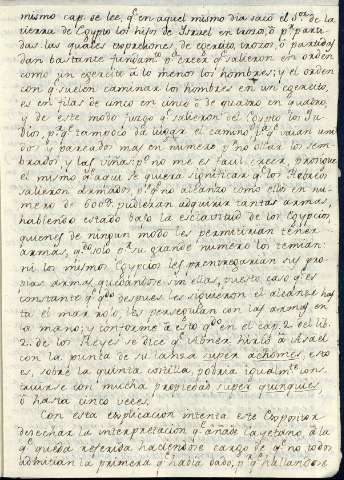 mismo cap. se lee, q.e en aquel mismo dia sacó el S.or de la
tierra de Egypto los hijos de Israel en trozos, ó p.r parti-
das las quales expresiones de egercito, trozos, ó partidas
dan bastante fundam.to p.a creer q.e salieron en orden
como un egercito á lo menos los hombres; y el orden
con q.e suelen caminar los hombres en un egercito,
es en filas de cinco en cinco ó de quatro en quatro,
y de este modo juzgo q.e salieron del Egypto los Ju-
dios, p.r q.e tampoco dá lugar el camino p.a q.e vaian uni-
dos y pareados mas en numero p.r no ollar los sem-
brados y las viñas: p.o no me es facil creer, pronque
el mismo q.e aqui se quiera significar q.e los Hebreos
salieron armados, p.r q.e no alcanzo como ellos en nu-
mero de 600 pudieran adquirir tantas armas,
habiendo estado bajo la esclavitud de los Egypcios,
quienes de ningun modo les permitirian tener
armas, q.do solo p.r su grande numero los temian:
ni los mismos Egypcios les prentregarian sus pro-
pias armas quedandose sin ellas, puesto caso q.e es
constante q.e q.do despues les siguieron el alcanze has-
ta el mar rojo, les perseguian con las armas en
la mano; y conforme á esto q.do en el cap. 2 del lib.
2. de los Reyes se dice q.e Abner hirió á Asael
con la punta de su lanza super achomes, esto
es, sobre la quinta costilla, podria igualm.te cons-
truirse con mucha propiedad super quinquies,
ó hasta cinco veces.
Con esta explicacion intenta este Expositor
desechar la interpretacion q.e añade Cayetano, á la
q.e queda referida haciendose cargo de q.e no todos
admitian la primera q.e habia dado, p.r q.e hallandose